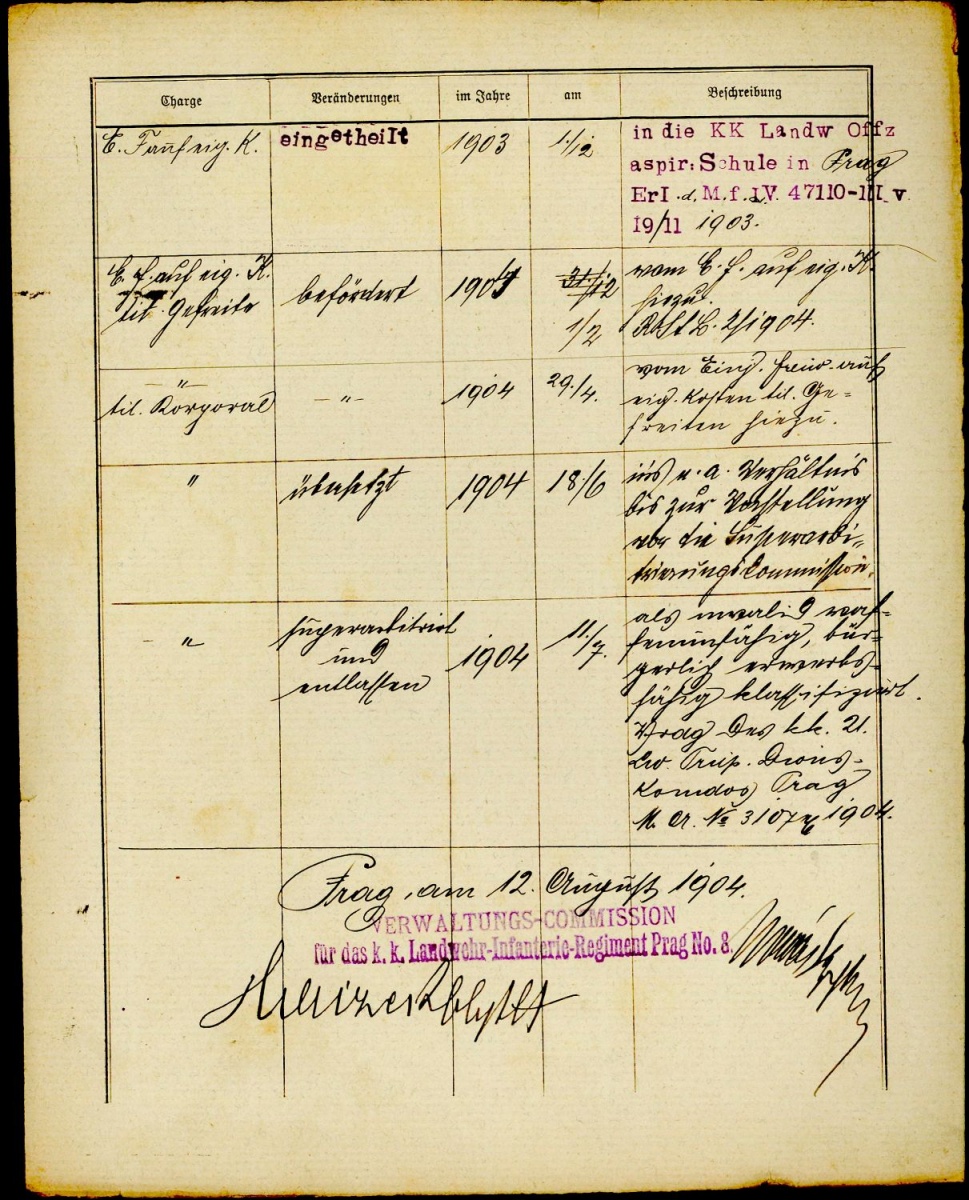 Charge Veränderungen im Jahre am Beschreibung
E. F. auf eig. K. eingetheilt 1903 1/12 in die KK Landw Offz
aspir: Schule in Prag
Erl. d. M. f. LV. 47110-III v
19/11 1903.
E. F. auf eig. K. befördert 1904 vom E. F. auf eig. K.
tit. Gefreite hiezu.
1/2 2/1904.
" tit. Korporal —"— 1904 29./4. vom Einj. freiw. auf
eig. Kosten tit. Ge=
freiten hiezu.
" übersetzt 1904 18./6 ins n. a. Verhältnis
bis zur Vorstellung
vor die Superarbi=
trierungskommission.
" superarbitrirt
und
entlassen 1904 11./7. als invalid waf=
fenunfähig, bür=
gerlich erwerbs=
fähig klassifizirt.
Prag des kk. 21.
Lw. Trup. Divis=
Komdos Prag
M. A. № 3107 1904.
Prag, am 12. August 1904.
VERWALTUNGS-COMMISSION
für das k. k. Landwehr-Infanterie-Regiment Prag No. 8.